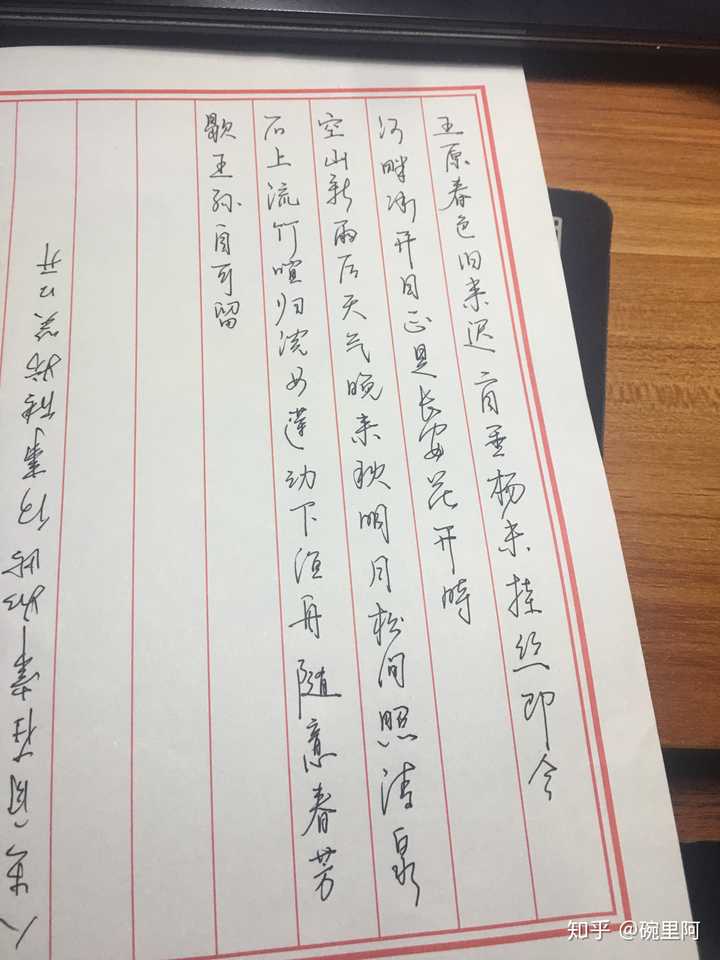 五原春色旧来迟二月垂杨未挂丝即今
河畔冰开日正是长安花开时
空山新雨后天气晚来秋明月松间照清泉
石上流竹喧归浣女莲动下渔舟随意春芳
歇王孙自可留
笑口开
知乎 @碗里阿